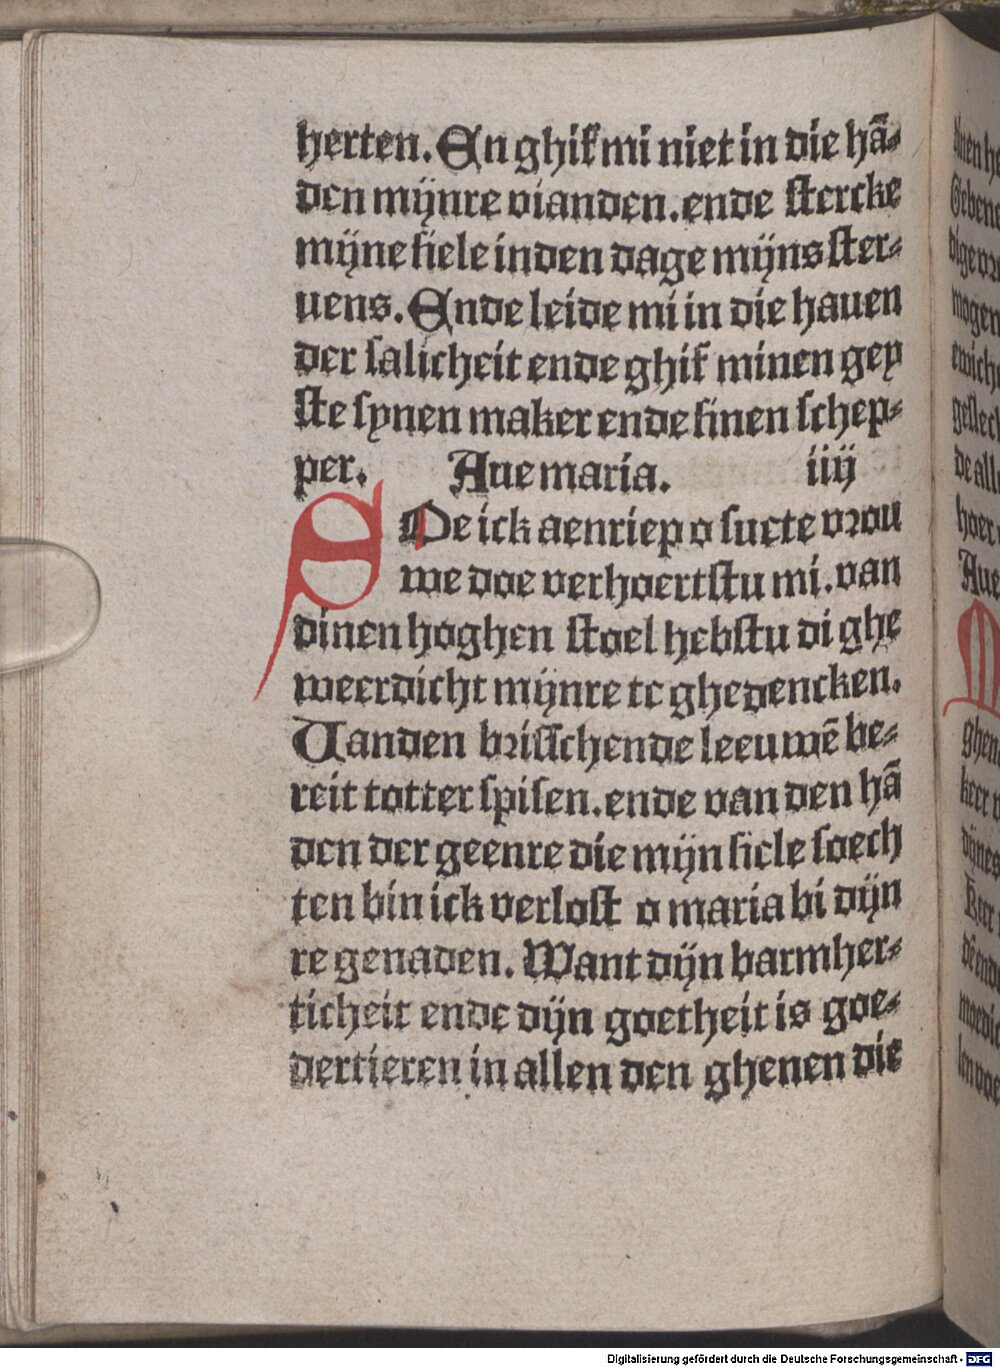 herten. En ghif mi niet in die hā-
den mijnre vianden. ende stercke
mijne siele in den dage mijns ster-
uens. Ende leide mi in die hauen
der salicheit ende ghif minen gey
ste synen maker ende sinen schep-
per. Aue maria. iiij
DOe ick aenriep o suete vrou
we doe verhoertstu mi. van
dinen hoghen stoel hebstu di ghe
weerdicht mijnre te ghedencken.
Uanden brisschende leeuwē be-
reit totter spisen. ende van den hā
den der geenre die mijn siele soech
ten bin ick verlost o maria bi dijn
re genaden. Want dijn barmher-
ticheit ende dijn goetheit is goe-
dertieren in allen den ghenen die
Digitalisierung gefördert durch die Deutsche Forschungsgemeinschaft - DFG